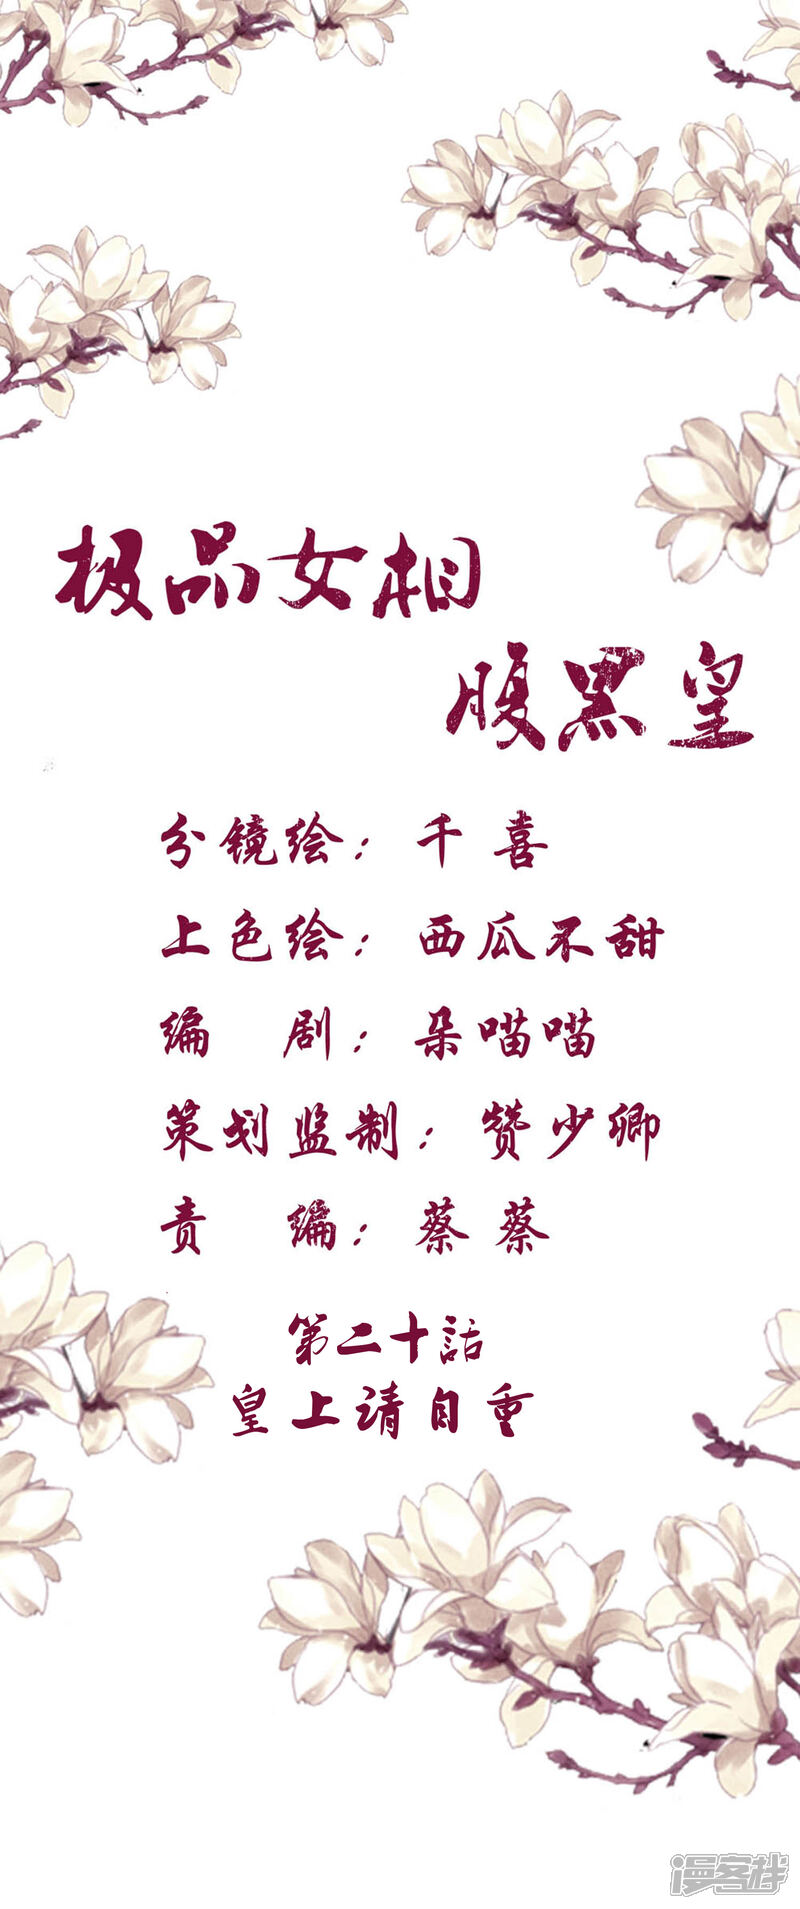 极品女相
腹黑皇
分镜绘：千喜
上色绘：西瓜不甜
编剧：朵喵喵
策划监制：赞少卿
责编：蔡蔡
第二十話
皇上请自重
漫客栈